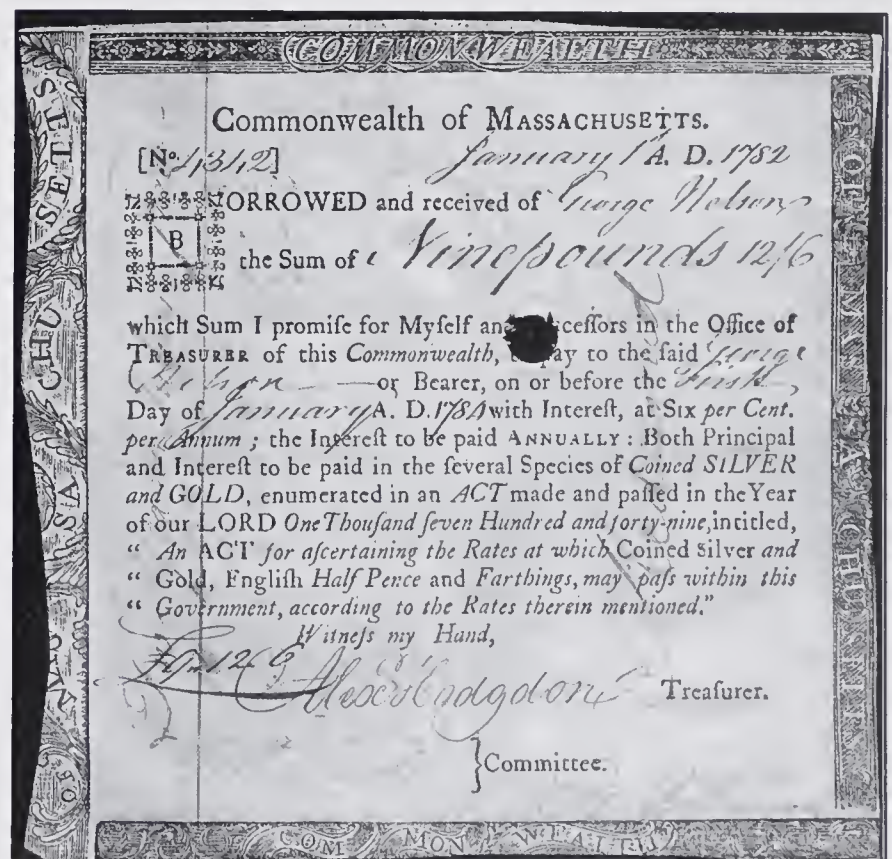 COMMONWEALTH
OF MASSACHUSETTS
MASSACHUSETTS
Commonwealth of MASSACHUSETTS.
[No. 4342] January 1 A. D. 1782
BORROWED and received of George Nelson
the Sum of Nine pounds 12/6
which Sum I promiſe for Myſelf and ceſſors in the Office of
TREASURER of this Commonwealth, to pay to the ſaid George
Nelson — or Bearer, on or before the First
Day of January A. D. 1784 with Intereſt, at Six per Cent.
per Annum ; the Intereſt to be paid ANNUALLY : Both Principal
and Intereſt to be paid in the ſeveral Species of Coined SILVER
and GOLD, enumerated in an ACT made and paſſed in the Year
of our LORD One Thouſand ſeven Hundred and forty-nine, intitled,
“ An ACT for aſcertaining the Rates at which Coined Silver and
“ Gold, Engliſh Half Pence and Farthings, may paſs within this
“ Government, according to the Rates therein mentioned.”
Witneſs my Hand,
£9.. 12 6
Alexr Hodgdon Treaſurer.
}Committee.
COMMONWEALTH